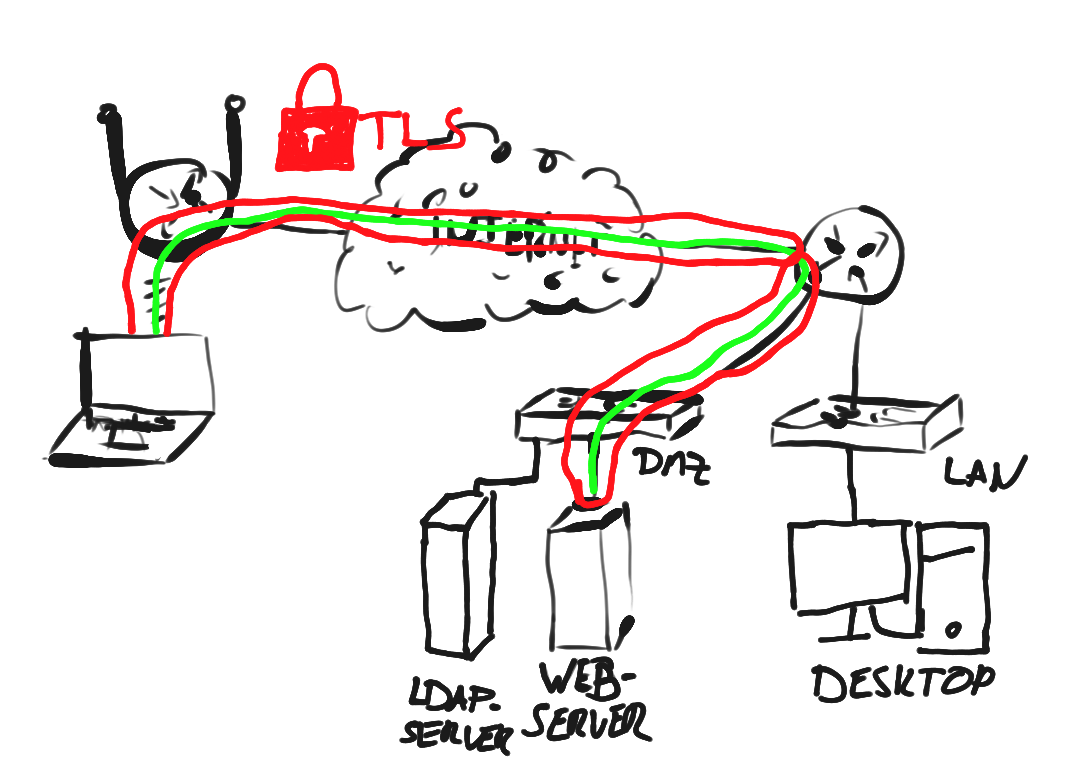 TLS
INTERNET
DMZ
LAN
LDAP-
SERVER
WEB-
SERVER
DESKTOP